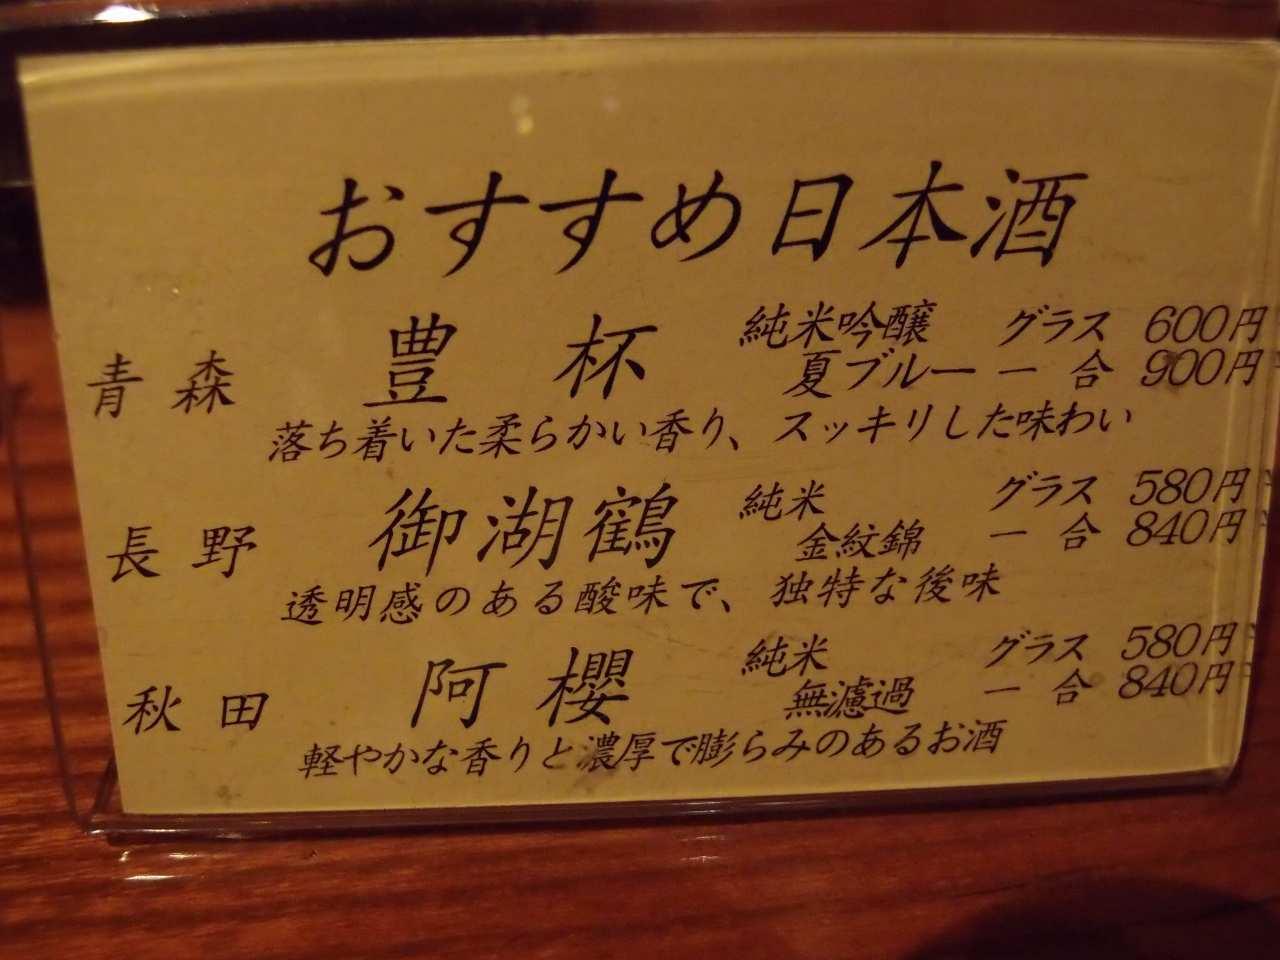 おすすめ日本酒
青森 豊杯 純米吟醸 グラス 600円
夏ブルー 一合 900円
落ち着いた柔らかい香り、スッキリした味わい
長野 御湖鶴 純米 グラス 580円
金紋錦 一合 840円
透明感のある酸味で、独特な後味
秋田 阿櫻 純米 グラス 580円
無濾過 一合 840円
軽やかな香りと濃厚で膨らみのあるお酒